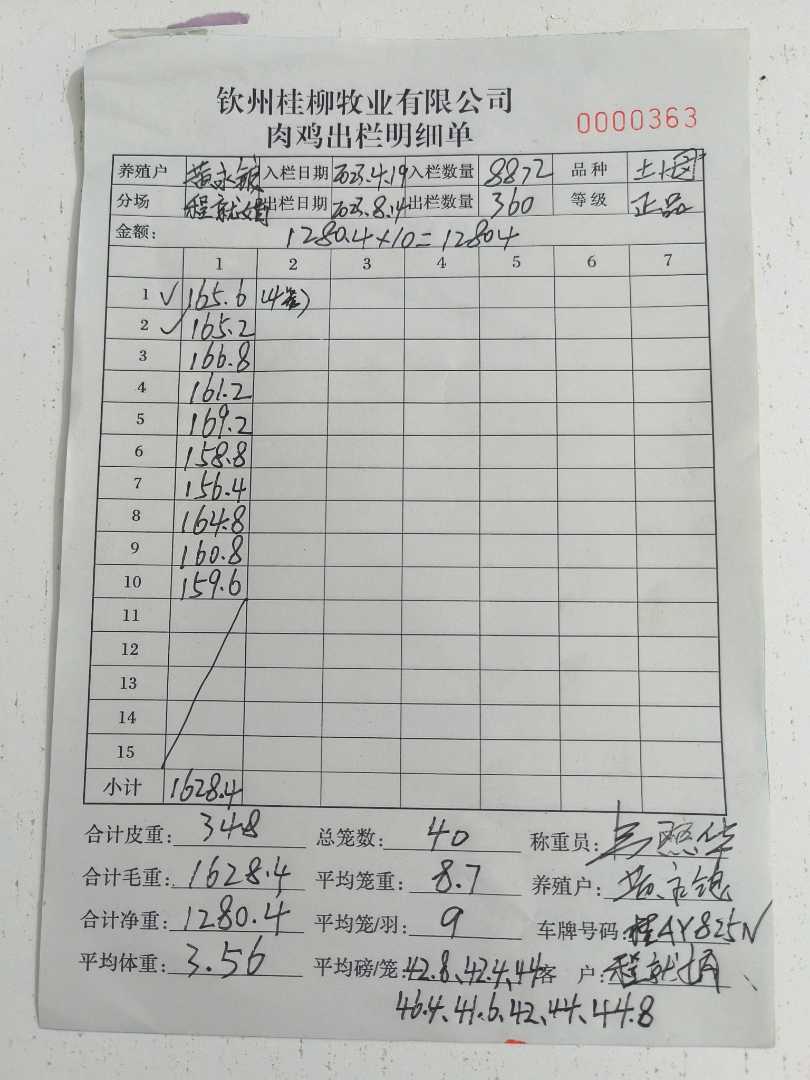 钦州桂柳牧业有限公司
肉鸡出栏明细单
0000363
养殖户 黄永 入栏日期 2023.4.19 入栏数量 8872 品种 土
分场 程就 出栏日期 2023.8.14 出栏数量 360 等级 正品
金额: 1280.4×10=12804
1 2 3 4 5 6 7
1 ✓ 165.6 (4笼)
2 ✓ 165.2
3 166.8
4 161.2
5 169.2
6 158.8
7 156.4
8 164.8
9 160.8
10 159.6
11
12
13
14
15
小计 1628.4
合计皮重: 348 总笼数: 40 称重员:
合计毛重: 1628.4 平均笼重: 8.7 养殖户: 黄永
合计净重: 1280.4 平均笼/羽: 9 车牌号码: 桂AY825N
平均体重: 3.56 平均磅/笼: 42.8、42.4、44 客 户: 程就
46.4、41.6、42、44、44.8